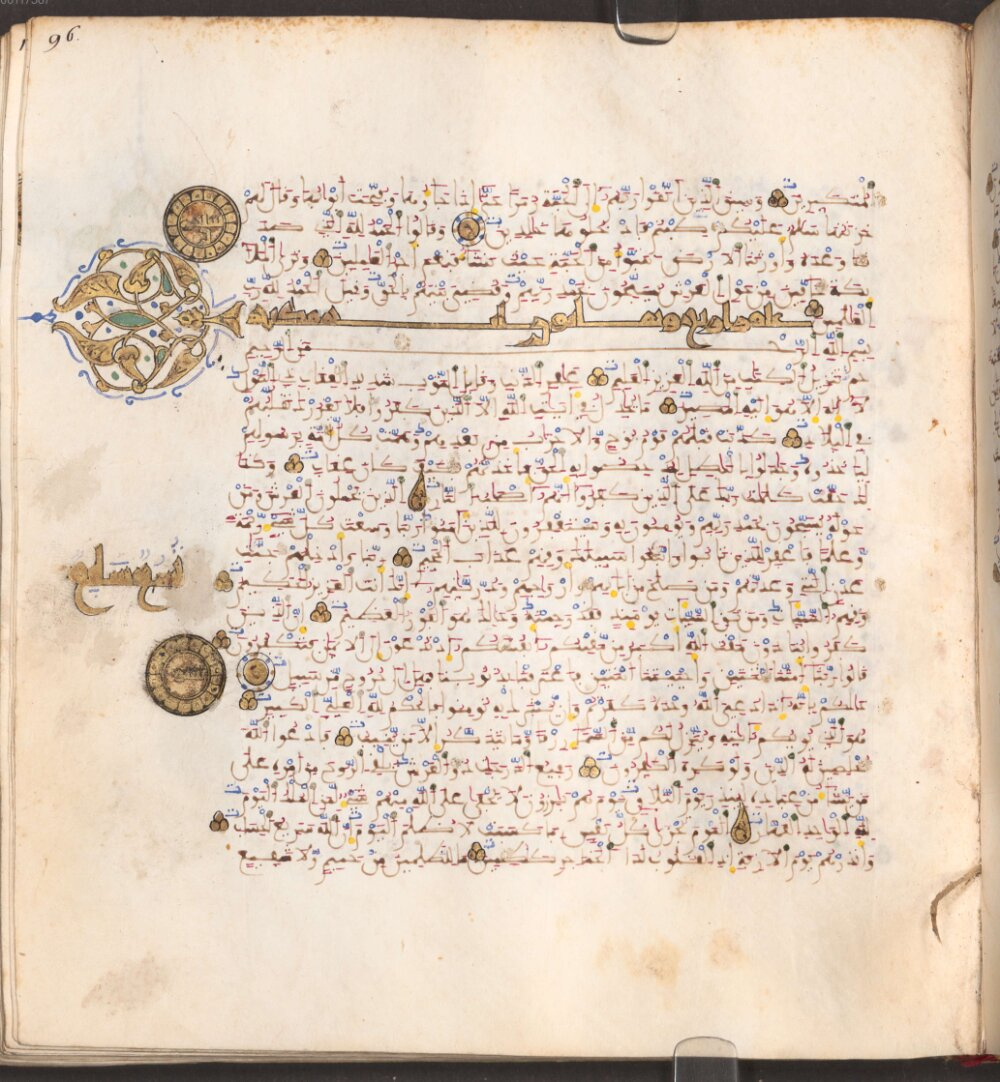 96.
المتكبرين وسيق الذين اتقوا ربهم إلى الجنة زمرا حتى إذا جاءوها وفتحت أبوابها وقال لهم
خزنتها سلم عليكم طبتم فادخلوها خلدين وقالوا الحمد لله الذي صد
قنا وعده وأورثنا الأرض نتبوأ من الجنة حيث نشاء فنعم أجر العملين وترى الملا
ئكة حافين من حول العرش يسبحون بحمد ربهم وقضي بينهم بالحق وقيل الحمد لله رب
العلمين
مكية
بسم الله الرحمن الرحيم
حم تنزيل الكتب من الله العزيز العليم غافر الذنب وقابل التوب شديد العقاب ذي الطول
لا إله إلا هو إليه المصير ما يجدل في آيت الله إلا الذين كفروا فلا يغررك تقلبهم
في البلد كذبت قبلهم قوم نوح والأحزاب من بعدهم وهمت كل أمة برسولهم
ليأخذوه وجدلوا بالبطل ليدحضوا به الحق فأخذتهم فكيف كان عقاب وكذا
لك حقت كلمت ربك على الذين كفروا أنهم أصحب النار الذين يحملون العرش ومن
حوله يسبحون بحمد ربهم ويومنون به ويستغفرون للذين آمنوا ربنا وسعت كل شيء رحمة
وعلما فاغفر للذين تابوا واتبعوا سبيلك وقهم عذاب الجحيم ربنا وأدخلهم جنت
عدن التي وعدتهم ومن صلح من آبائهم وأزوجهم وذريتهم إنك أنت العزيز الحكيم
وقهم السيئات ومن تق السيئات يومئذ فقد رحمته وذلك هو الفوز العظيم إن الذين
كفروا ينادون لمقت الله أكبر من مقتكم أنفسكم إذ تدعون إلى الإيمن فتكفرون
قالوا ربنا أمتنا اثنتين وأحييتنا اثنتين فاعترفنا بذنوبنا فهل إلى خروج من سبيل
ذلكم بأنه إذا دعي الله وحده كفرتم وإن يشرك به تومنوا فالحكم لله العلي الكبير
هو الذي يريكم آيته وينزل لكم من السماء رزقا وما يتذكر إلا من ينيب فادعوا الله
مخلصين له الدين ولو كره الكفرون رفيع الدرجت ذو العرش يلقي الروح من أمره على
من يشاء من عباده لينذر يوم التلاق يوم هم برزون لا يخفى على الله منهم شيء لمن الملك اليوم
لله الوحد القهار اليوم تجزى كل نفس بما كسبت لا ظلم اليوم إن الله سريع الحساب
وأنذرهم يوم الآزفة إذ القلوب لدى الحناجر كظمين ما للظلمين من حميم ولا شفيع